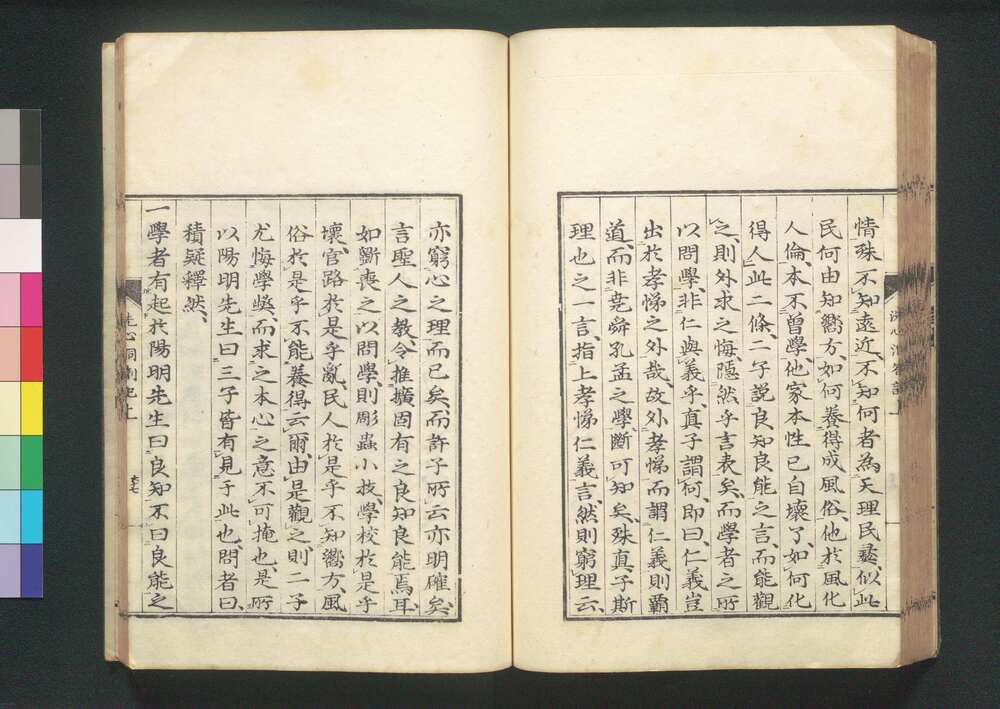 情殊不知遠近、不知何者為天理民彝、似此
民何由知嚮方、如何養得成風俗、他於風化
人倫、本不曾學他家本性已自壞了、如何化
得人、此二條、二子説良知良能之言、而能觀
之、則外求之悔、隱然乎言表矣、而學者之所
以問學、非仁與義乎、真子謂何、即曰、仁義豈
出於孝悌之外哉、故外孝悌而謂仁義則霸
道、而非堯舜孔孟之學、斷可知矣、殊真子斯
理也之一言、指上孝悌仁義言、然則窮理云、
亦窮心之理而已矣、而許子所云亦明確矣、
言聖人之教、令推擴固有之良知良能焉耳、
如斵喪之以問學、則彫蟲小技、學校於是乎
壞、官路於是乎亂、民人於是乎不知嚮方、風
俗於是乎不能養得云爾、由是觀之、則二子
尤悔學奬、而求之本心之意不可掩也、是所
以陽明先生曰、三子皆有見于此也、問者曰、
積疑釋然、
一學者有起於陽明先生曰良知不曰良能之
洗心洞劄記上